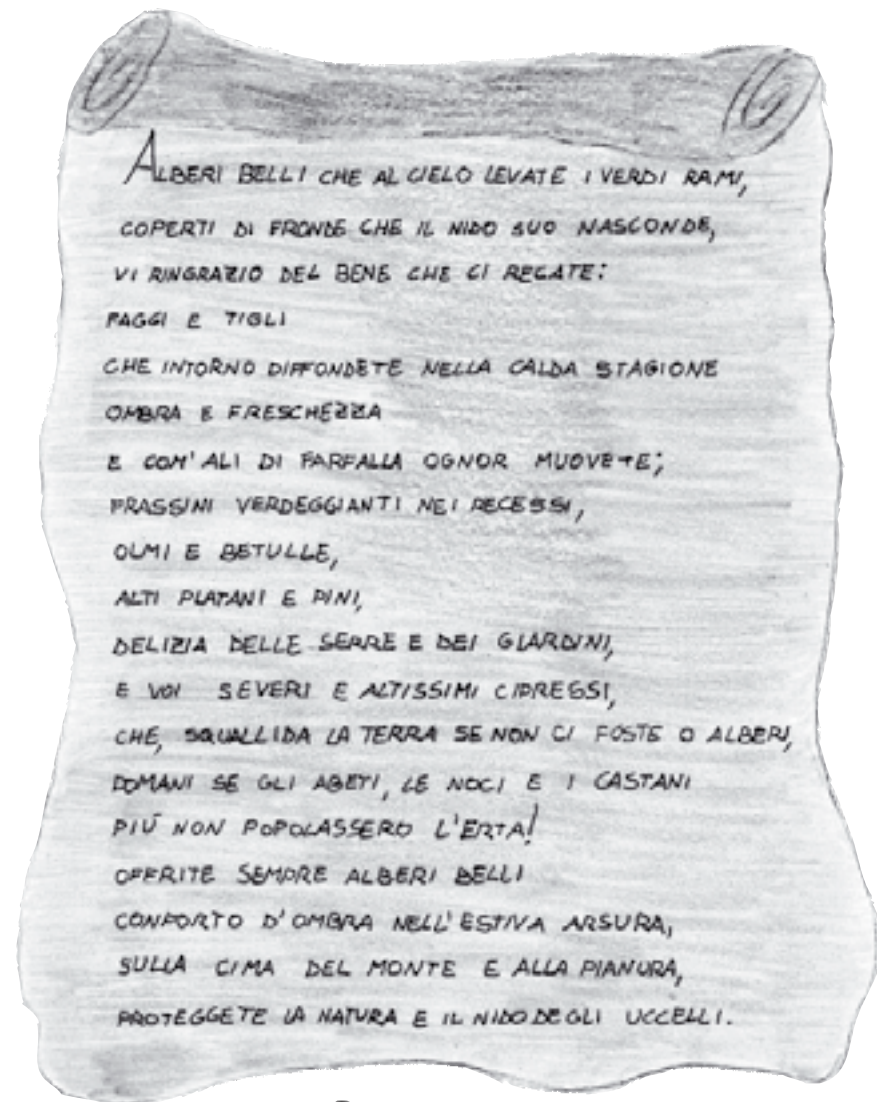 ALBERI BELLI CHE AL CIELO LEVATE I VERDI RAMI,
COPERTI DI FRONDE CHE IL NIDO SUO NASCONDE,
VI RINGRAZIO DEL BENE CHE CI RECATE:
FAGGI E TIGLI
CHE INTORNO DIFFONDETE NELLA CALDA STAGIONE
OMBRA E FRESCHEZZA
E COM'ALI DI FARFALLA OGNOR MUOVETE;
FRASSINI VERDEGGIANTI NEI RECESSI,
OLMI E BETULLE,
ALTI PLATANI E PINI,
DELIZIA DELLE SERRE E DEI GIARDINI,
E VOI SEVERI E ALTISSIMI CIPRESSI,
CHE, SQUALLIDA LA TERRA SE NON CI FOSTE O ALBERI,
DOMANI SE GLI ABETI, LE NOCI E I CASTANI
PIÚ NON POPOLASSERO L'ERTA!
OFFRITE SEMPRE ALBERI BELLI
CONFORTO D'OMBRA NELL'ESTIVA ARSURA,
SULLA CIMA DEL MONTE E ALLA PIANURA,
PROTEGGETE LA NATURA E IL NIDO DEGLI UCCELLI.